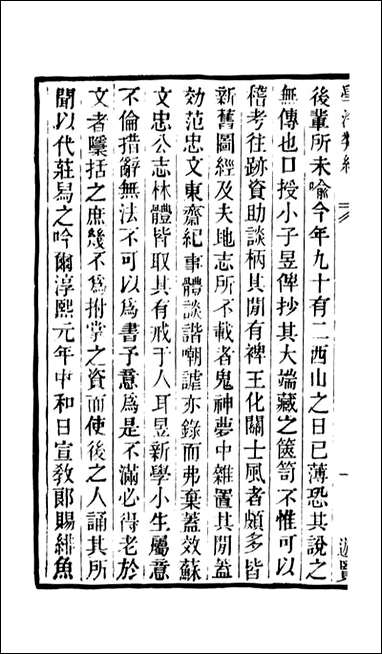 後輩所未喻今年九十有二西山之日已薄恐其說之
無傳也口授小子昱俾抄其大端藏之篋笥不惟可以
稽考往跡資助談柄其閒有裨王化關士風者頗多皆
新舊圖經及夫地志所不載者鬼神夢中雜置其閒蓋
効范忠文東齋紀事體談諧嘲謔亦錄而弗棄蓋效蘇
文忠公志林體皆取其有戒于人耳昱新學小生屬意
不倫措辭無法不可以爲書予意爲是不滿必得老於
文者櫽括之庶幾不爲拊掌之資而使後之人誦其所
聞以代莊舄之吟爾淳熙元年中和日宣敎郎賜緋魚